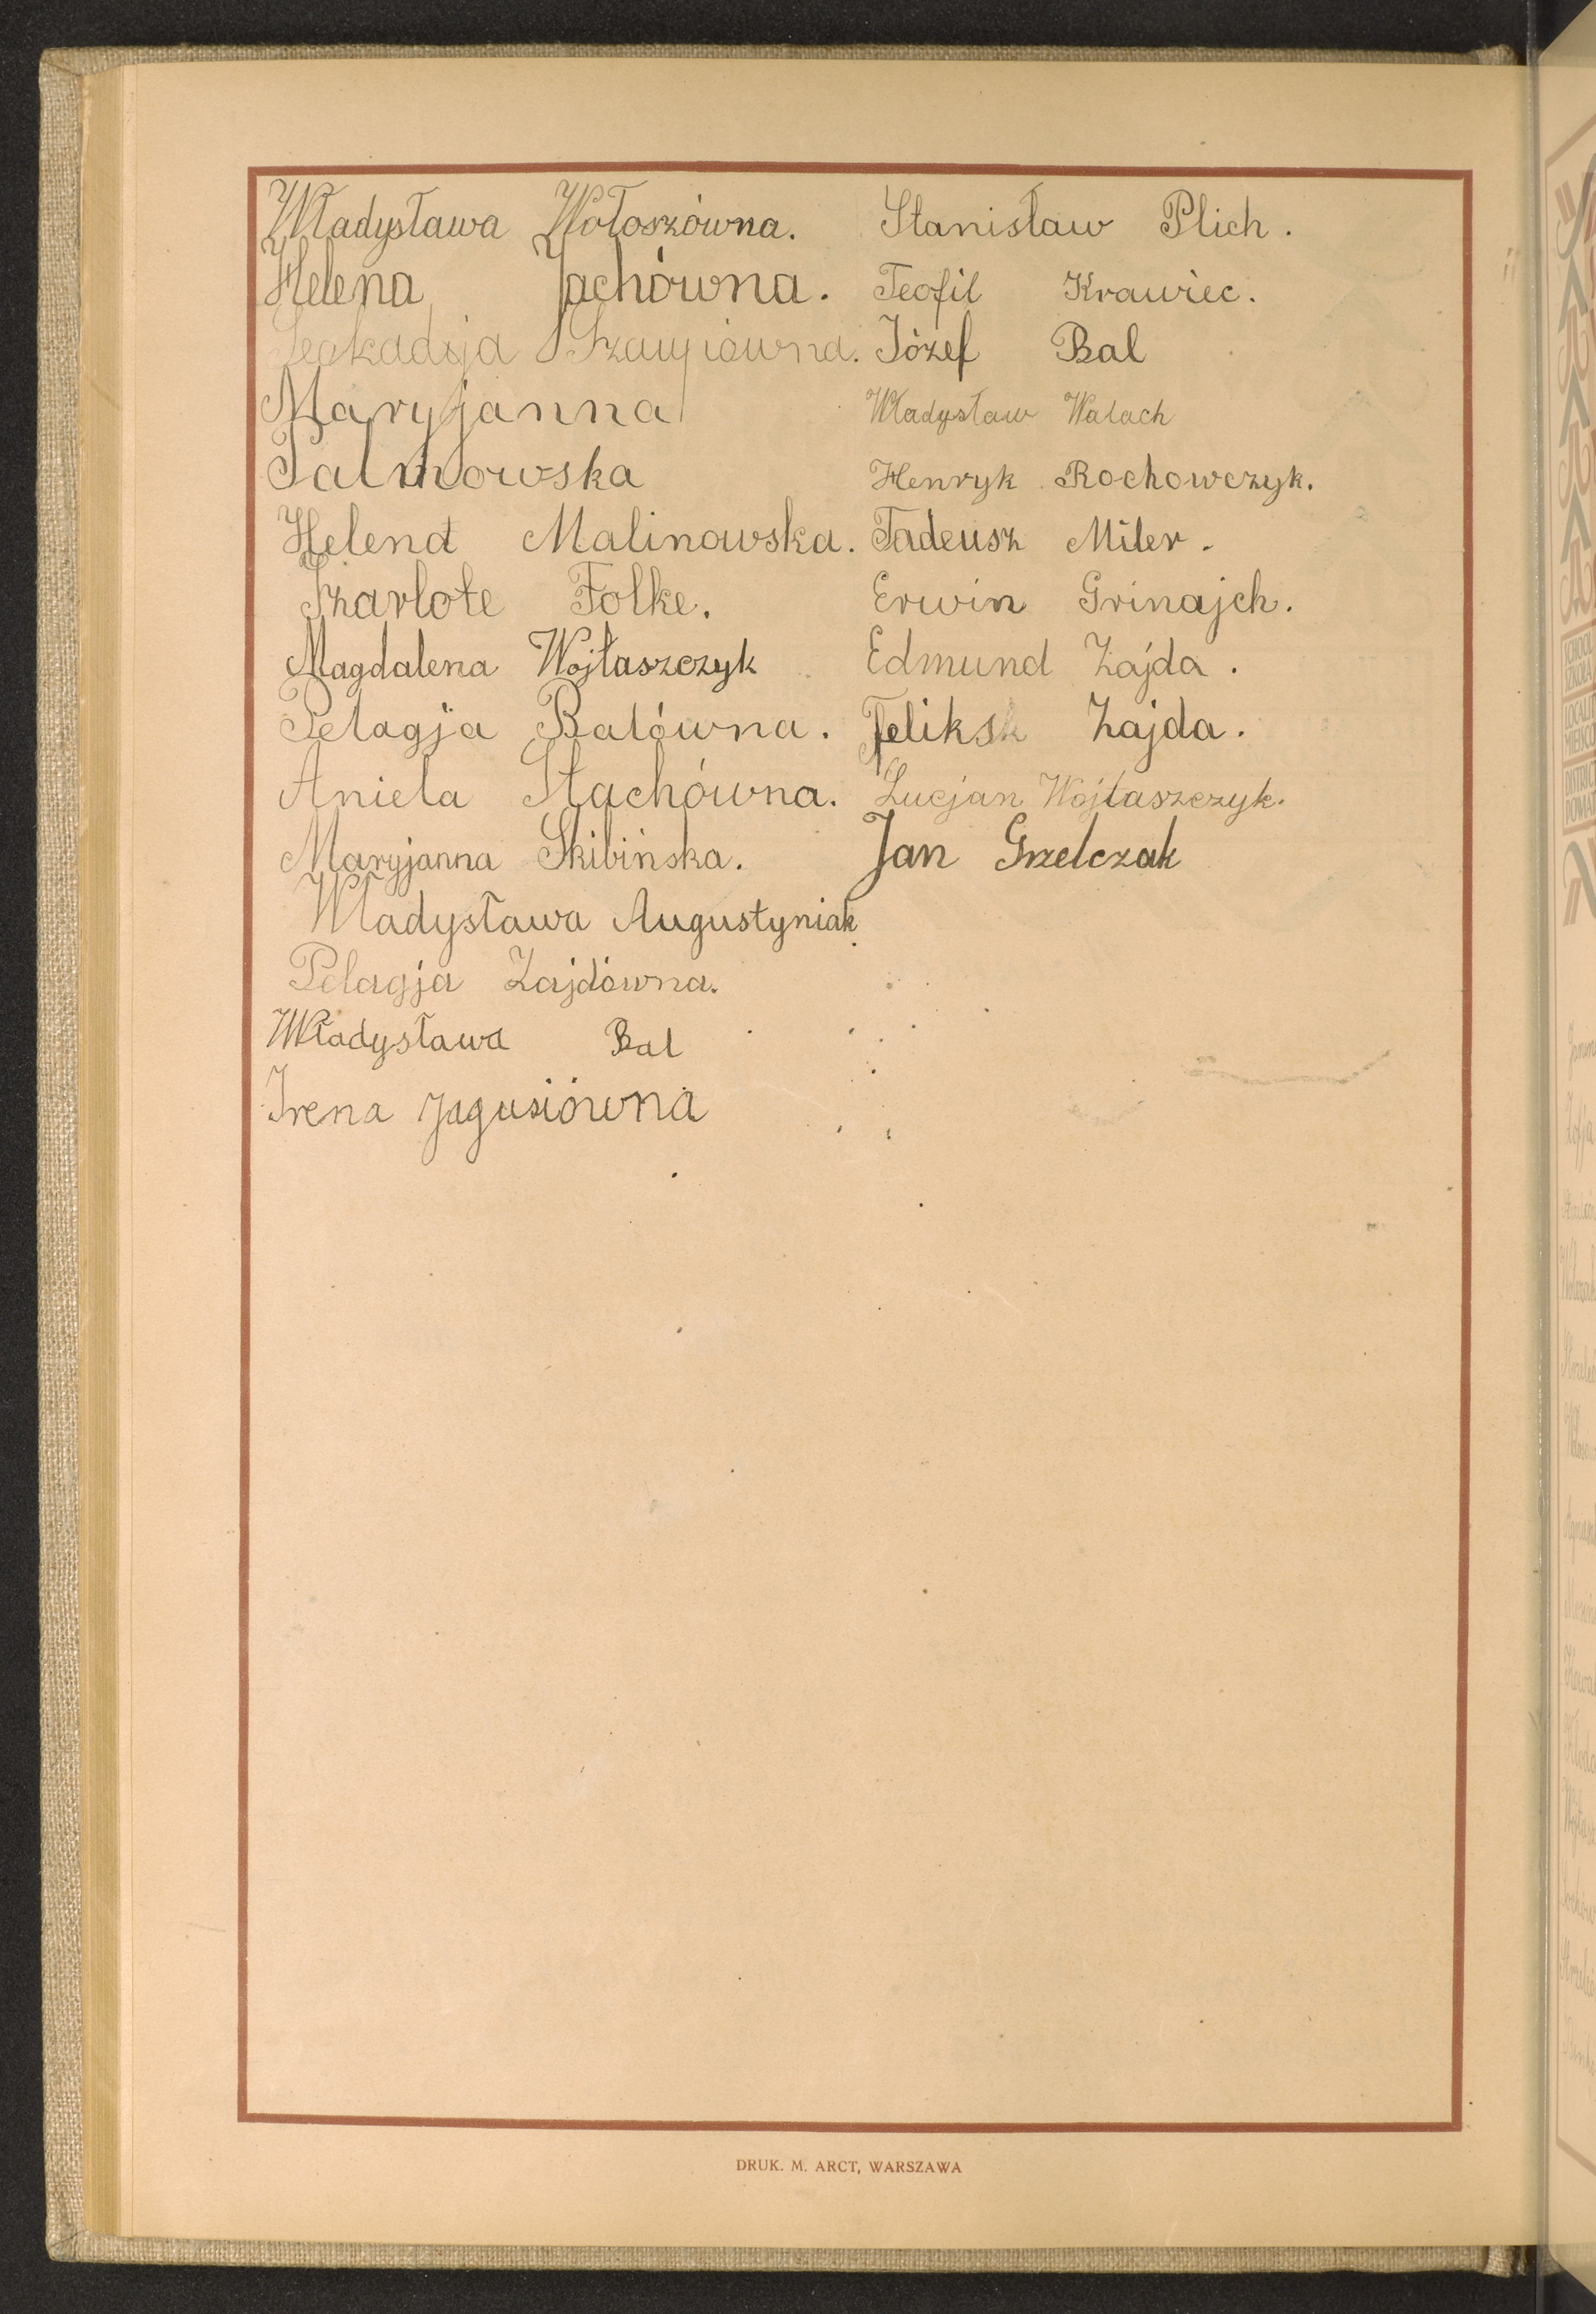 Władysława Wołoszówna.
Helena Jachówna.
Leokadyja
Maryjanna
Palmowska
Helena Malinowska.
Szarlote Folke.
Magdalena Wojtaszczyk
Pelagja Balówna.
Aniela Stachówna.
Maryjanna Skibińska.
Władysława Augustyniak.
Pelagja Zajdówna.
Władysława Bal
Irena Jagusiówna
Stanisław Plich.
Teofil Krawiec.
Józef Bal
Władysław Walach
Henryk Rochowczyk.
Tadeusz Miler.
Erwin Grinajch.
Edmund Zajda.
Feliks Zajda.
Lucjan Wojtaszczyk.
Jan Grzelczak
DRUK. M. ARCT, WARSZAWA